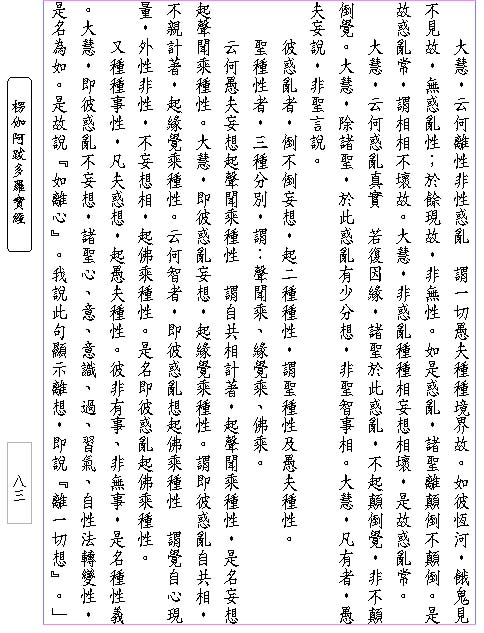 大慧，云何離性非性惑亂　謂一切愚夫種種境界故。如彼恆河，餓鬼見
不見故，無惑亂性；於餘現故，非無性。如是惑亂，諸聖離顛倒不顛倒。是
故惑亂常，謂相相不壞故。大慧，非惑亂種種相妄想相壞，是故惑亂常。
大慧，云何惑亂真實　若復因緣，諸聖於此惑亂，不起顛倒覺，非不顛
倒覺。大慧，除諸聖，於此惑亂有少分想，非聖智事相。大慧，凡有者，愚
夫妄說，非聖言說。
彼惑亂者，倒不倒妄想，起二種種性，謂聖種性及愚夫種性。
聖種性者，三種分別，謂：聲聞乘、緣覺乘、佛乘。
云何愚夫妄想起聲聞乘種性　謂自共相計著，起聲聞乘種性，是名妄想
起聲聞乘種性。大慧，即彼惑亂妄想，起緣覺乘種性。謂即彼惑亂自共相，
不親計著，起緣覺乘種性。云何智者，即彼惑亂想起佛乘種性　謂覺自心現
量，外性非性，不妄想相，起佛乘種性。是名即彼惑亂起佛乘種性。
又種種事性，凡夫惑想，起愚夫種性。彼非有事、非無事，是名種性義
。大慧，即彼惑亂不妄想，諸聖心、意、意識、過、習氣、自性法轉變性，
是名為如。是故說『如離心』。我說此句顯示離想，即說『離一切想』。」
楞伽阿跋多羅寶經
八三